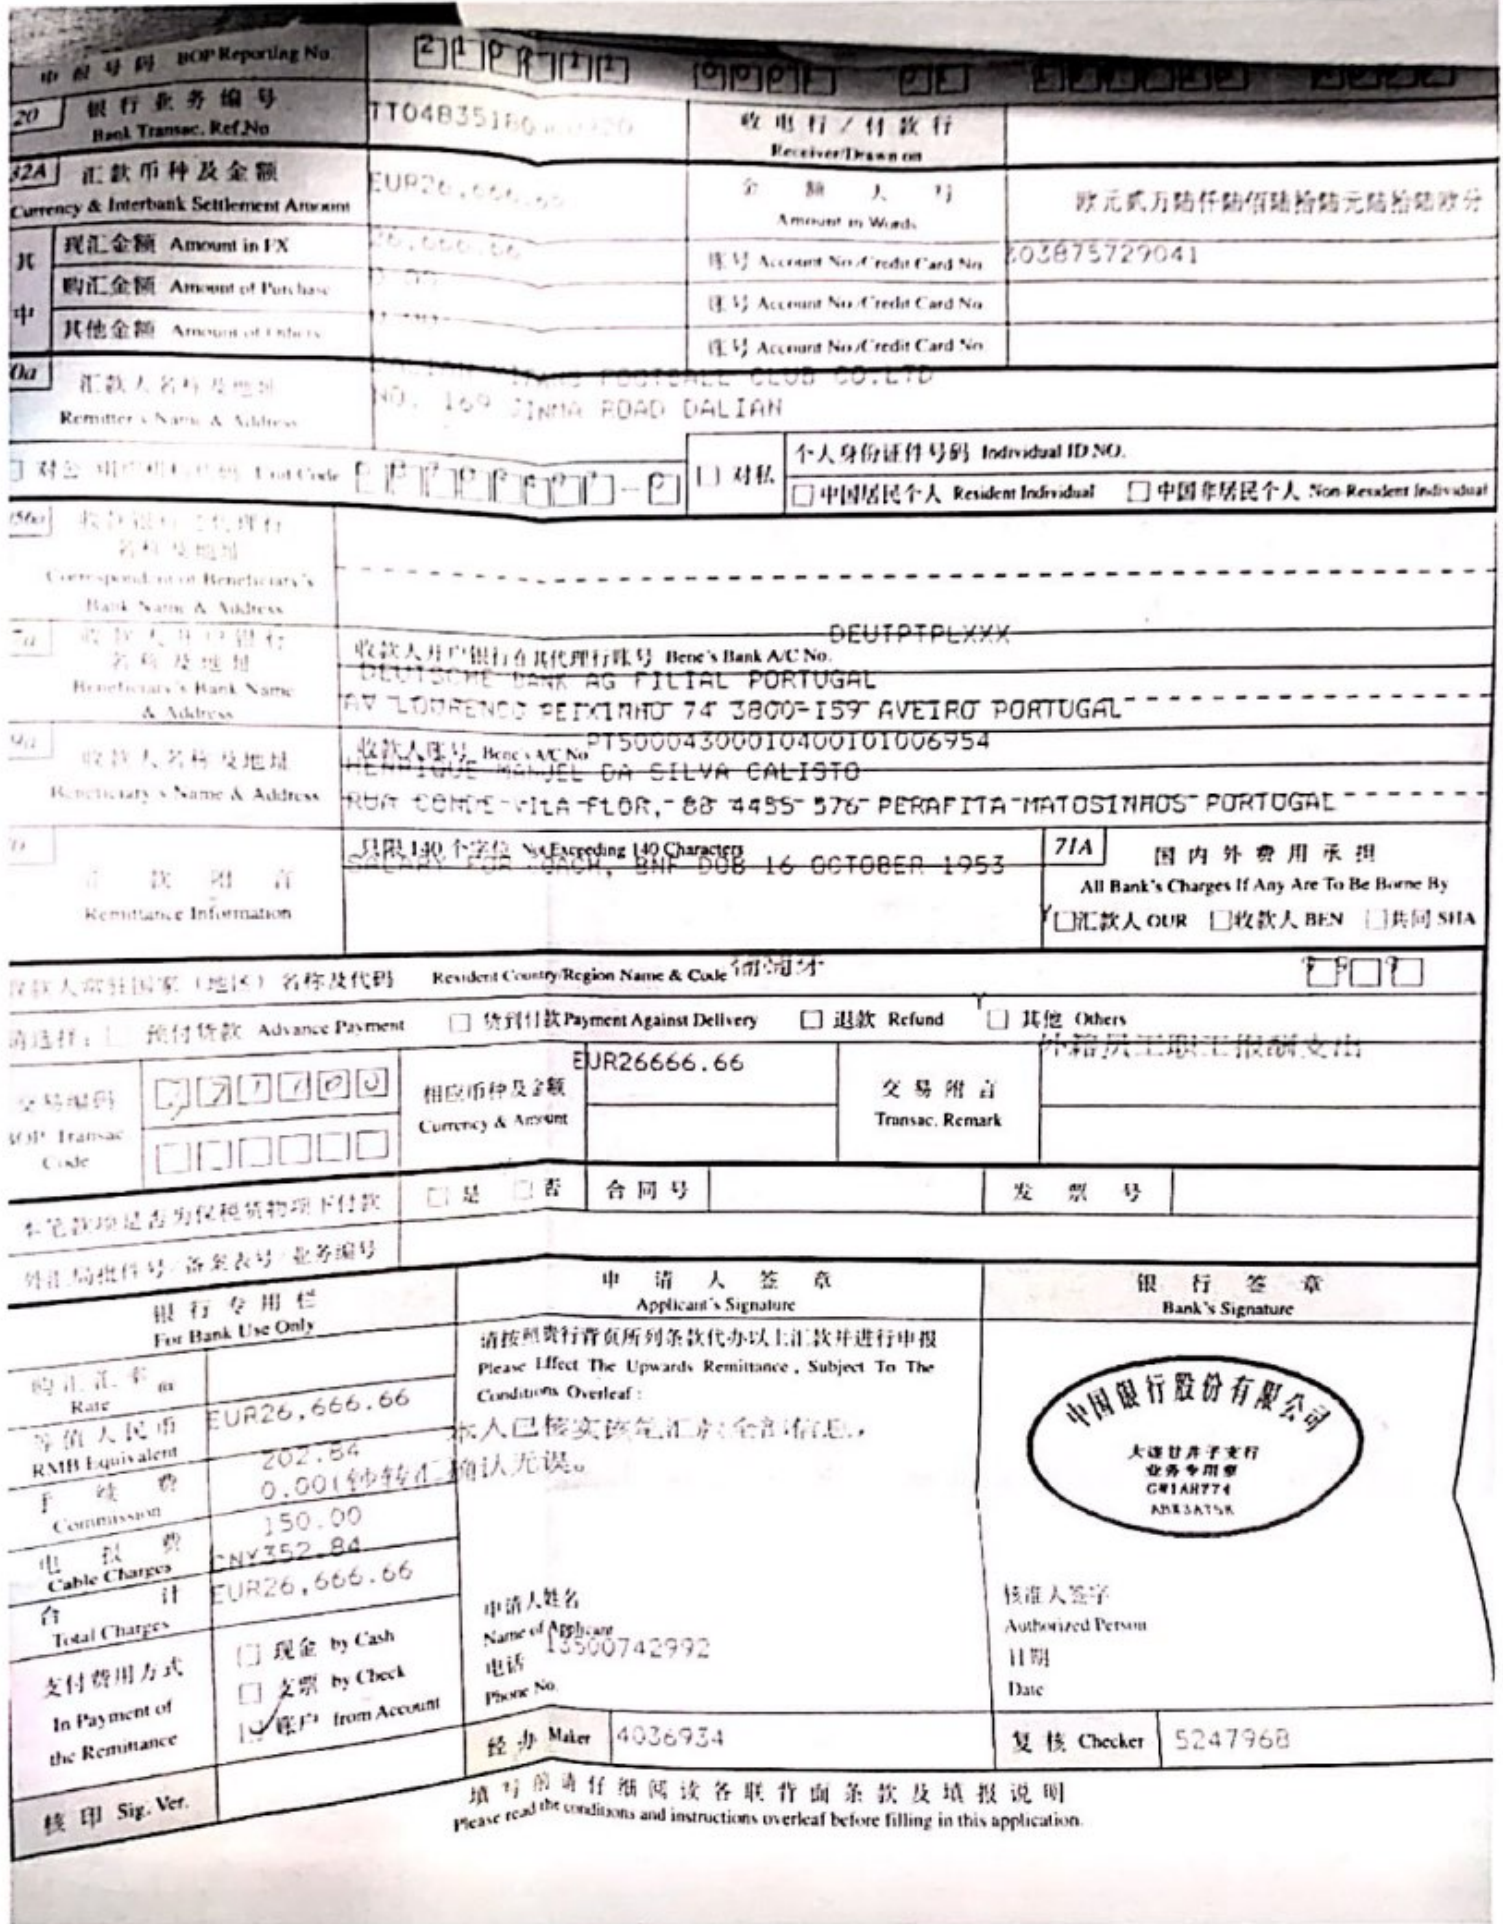 申报号码 BOP Reporting No.
20 银行业务编号
Bank Transac. Ref.No
收电行/付款行
Receiver/Drawn on
32A 汇款币种及金额
Currency & Interbank Settlement Amount
EUR26,666.66
金额大写
Amount in Words
欧元贰万陆仟陆佰陆拾陆元陆拾陆欧分
其中
现汇金额 Amount in FX
26,666.66
账号 Account No./Credit Card No
303875729041
购汇金额 Amount of Purchase
0.00
账号 Account No./Credit Card No
其他金额 Amount of Others
账号 Account No./Credit Card No
汇款人名称及地址
Remitter's Name & Address
FOOTBALL CLUB CO.LTD
NO. 169 JINMA ROAD DALIAN
对公 Unit Code
□ 对私
个人身份证件号码 Individual ID NO.
□ 中国居民个人 Resident Individual □ 中国非居民个人 Non-Resident Individual
名称及地址
Correspondent of Beneficiary's
Bank Name & Address
收款人开户银行
名称及地址
Beneficiary's Bank Name
& Address
DEUTPTPLXXX
收款人开户银行在其代理行账号 Bene's Bank A/C No.
DEUTSCHE BANK AG FILIAL PORTUGAL
AV LOURENCO PEIXINHO 74 3800-159 AVEIRO PORTUGAL
收款人名称及地址
Beneficiary's Name & Address
收款人账号 Bene's A/C No PT50004300010400101006954
HENRIQUE MANUEL DA SILVA CALISTO
RUA CONDE VILA FLOR, 88 4455-576 PERAFITA-MATOSINHOS PORTUGAL
汇款附言
Remittance Information
只限 140 个字位 Not Exceeding 140 Characters
SALARY FOR COACH, BNF DOB 16 OCTOBER 1953
71A 国内外费用承担
All Bank's Charges If Any Are To Be Borne By
□汇款人 OUR □收款人 BEN □共同 SHA
收款人常驻国家（地区）名称及代码 Resident Country/Region Name & Code 葡萄牙
请选择：□ 预付货款 Advance Payment □ 货到付款 Payment Against Delivery □ 退款 Refund □ 其他 Others
交易编码
BOP Transac
Code
相应币种及金额
Currency & Amount
EUR26666.66
交易附言
Transac. Remark
外籍员工职工报酬支出
本笔款项是否为保税货物项下付款
□ 是 □ 否
合同号
发票号
外汇局批件号/备案表号/业务编号
银行专用栏
For Bank Use Only
申请人签章
Applicant's Signature
银行签章
Bank's Signature
购汇汇率
Rate
等值人民币
RMB Equivalent
EUR26,666.66
手续费
Commission
202.84
0.001钞转汇
电报费
Cable Charges
150.00
CNY352.84
合计
Total Charges
EUR26,666.66
支付费用方式
In Payment of
the Remittance
□ 现金 by Cash
□ 支票 by Check
账户 from Account
核印 Sig. Ver.
请按照贵行背页所列条款代办以上汇款并进行申报
Please Effect The Upwards Remittance, Subject To The
Conditions Overleaf:
本人已核实该笔汇款全部信息，
确认无误。
申请人姓名
Name of Applicant
13500742992
电话
Phone No.
中国银行股份有限公司
大连甘井子支行
业务专用章
核准人签字
Authorized Person
日期
Date
经办 Maker 4036934
复核 Checker 5247968
填写前请仔细阅读各联背面条款及填报说明
Please read the conditions and instructions overleaf before filling in this application.